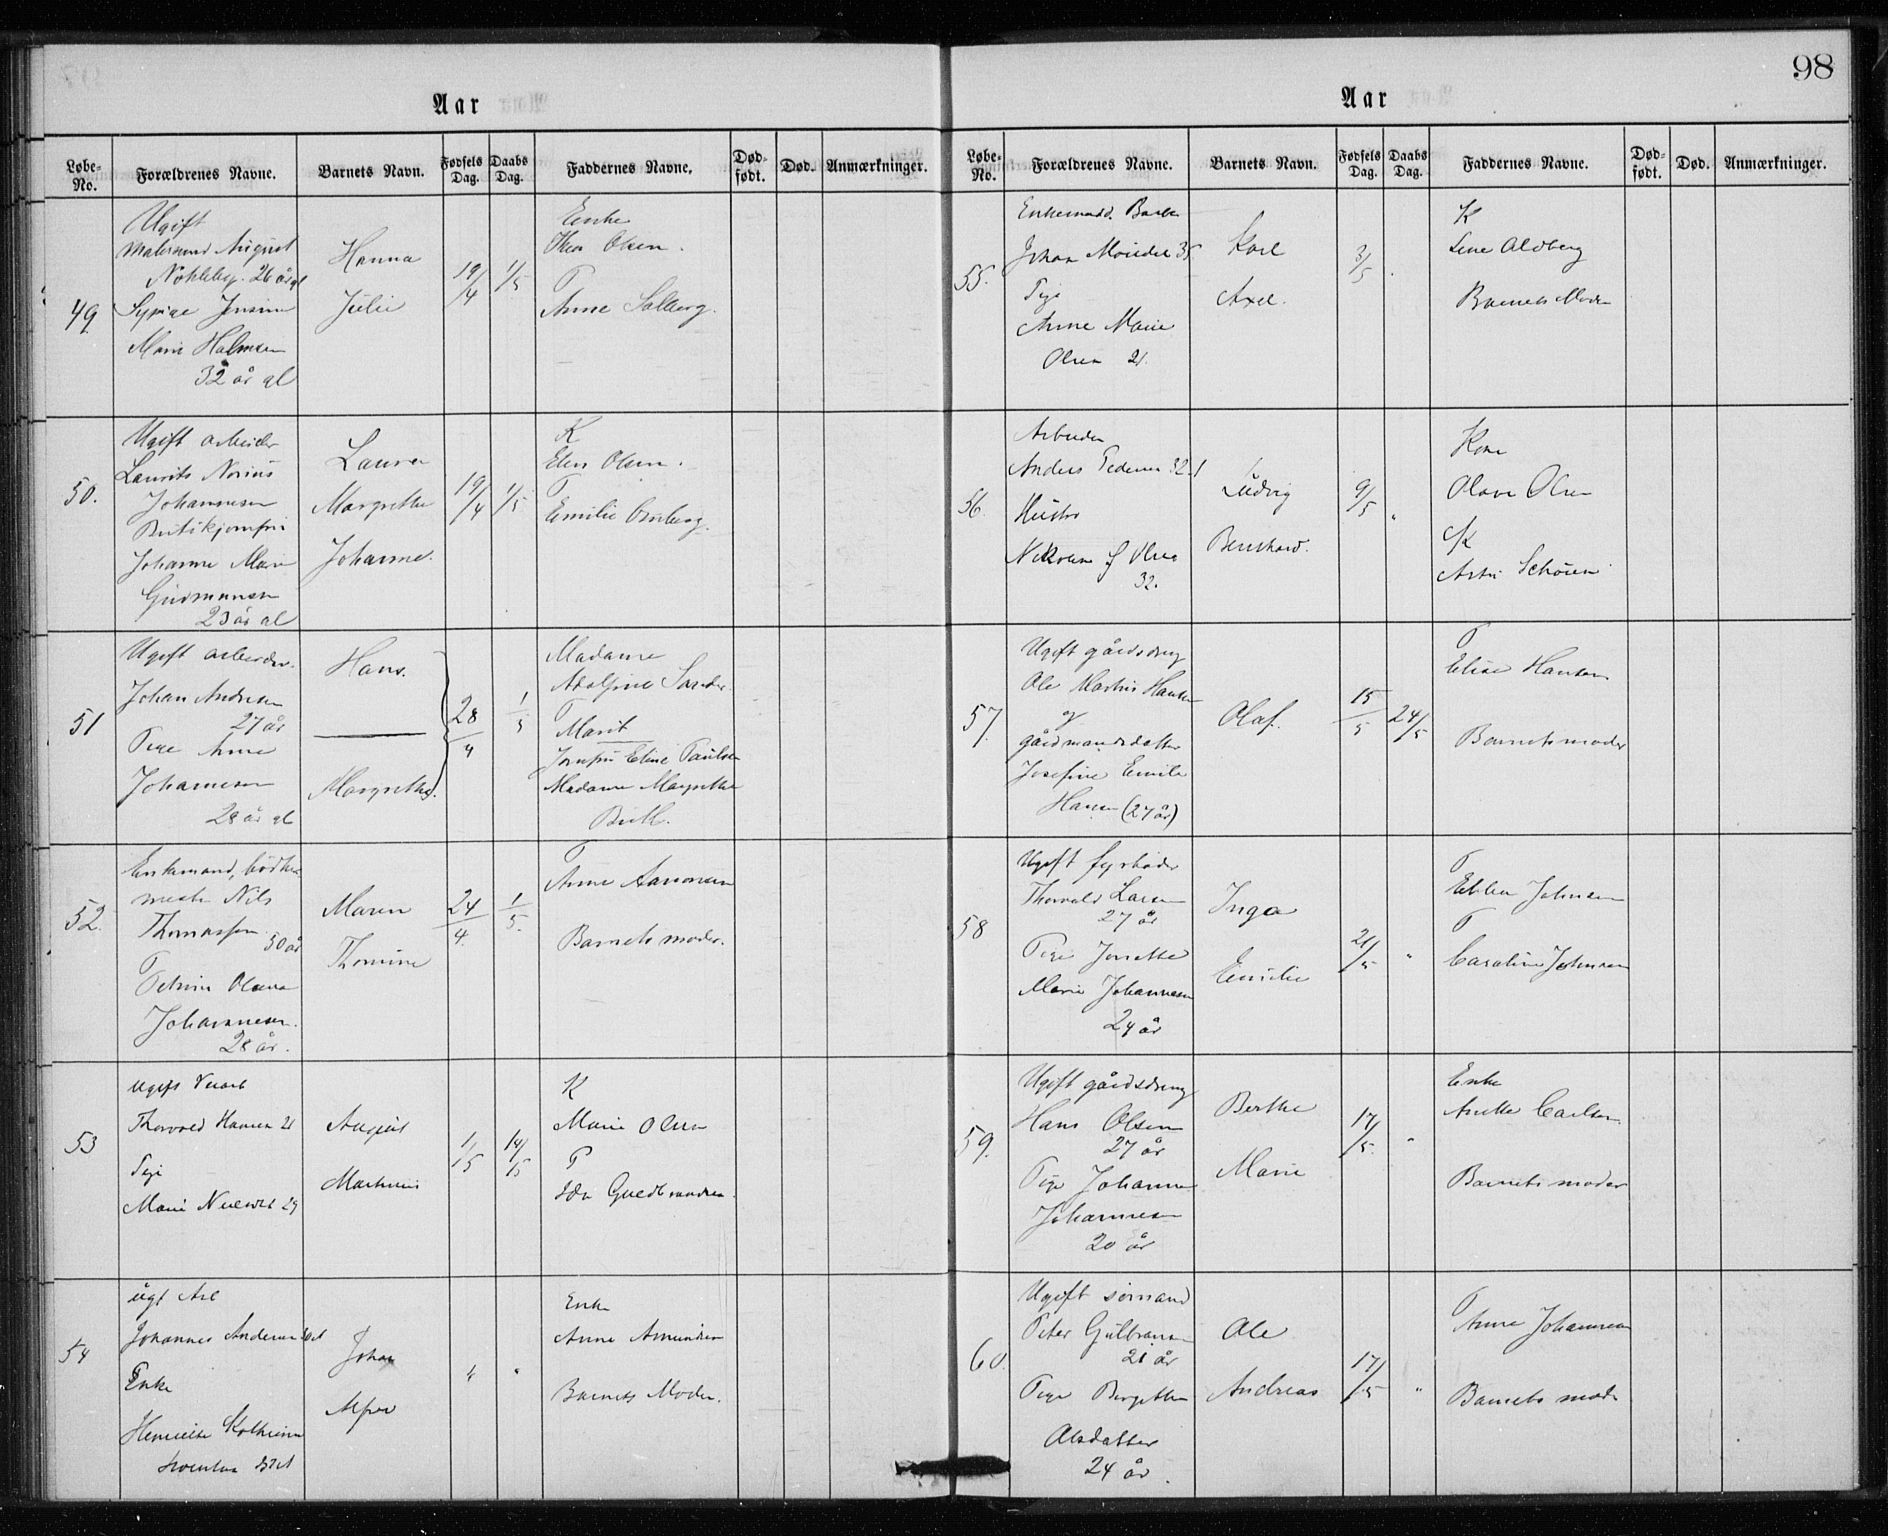 98
Aar
Løbe-No. Forældrenes Navne. Barnets Navn. Fødsels Dag. Daabs Dag. Faddernes Navne. Død-født. Død. Anmærkninger.
49.
Ugift
August
26 år gl
Jensine
Marie Halmsen
32 år gl
Hanna
Julie
19/4
1/5
Enke
Thea Olsen.
P
Anne Solberg.
50.
Ugift arbeider
Laurits Norius
Johannesen
Johanne Marie
Gudmunsen
23 år gl
Laura
Margrethe
Johanne.
19/4
1/5
K
Elen Olsen.
P
Emilie
51
Ugift arbeider.
Johan Andresen
27 år
Pige Anne
Johannesen
28 år gl
Hans.
Margrethe.
28/4
1/5
Madame
Adolfine
P
Marit
Jomfru Eline Paulsen
Madame Margrethe
52.
Enkemand, bødker
mester Nils
Thomassen
50 år
P
Petrine Oleana
Johannesen.
28 år.
Maren
Thomine
24/4.
1/5.
P
Anne Aanonsen
Barnets moder.
53
Ugift
Thorvald Hansen 21
Pige
Marie 29
August
Martinius
1/5
14/5
K
Marie Olsen
P
Ida Guldbrandsen.
54
ugt Arb
Johannes Andersen
Enke
Henriette Kathrine
Johan
Alfred
"
"
Enke
Anne Amundsen
Barnets Moder.
Aar
Løbe-No. Forældrenes Navne. Barnets Navn. Fødsels Dag. Daabs Dag. Faddernes Navne. Død-født. Død. Anmærkninger.
55.
Enkemand.
Johan 35
Pige
Anne Marie
Olsen 21.
Karl
Axel.
3/5
K
Lene Aldberg
Barnets Moder
56
Arbeider
Anders Pedersen 32
Hustru
Olsen
32.
Ludvig
Bernhard.
9/5
"
Kone
Olave Olsen
K
57.
Ugift gårdsdreng
Ole Martin Hansen
og
gårdmandsdatter
Josefine Emilie
Hansen (27 år)
Olaf.
15/5
24/5
P
Elise Hansen
Barnets moder
58
Ugift fyrbøder
Thorvald Larsen
27 år
Pige
Marie Johannesen
24 år
Inga
Emilie
21/5
"
P
Ebba Johnsen
P
Caroline Johnsen
59.
Ugift gårdsdreng
Hans Olsen
27 år
Pige Johanne
Johannesen
20 år
Berthe
Marie
17/5.
"
Enke
Anette Carlsen.
Barnets moder
60.
Ugift sømand
Peter Gulbransen
21 år
Pige Birgitte
Olsdatter
24 år.
Ole
Andreas
17/5
"
P
Anne Johannesen
Barnets moder